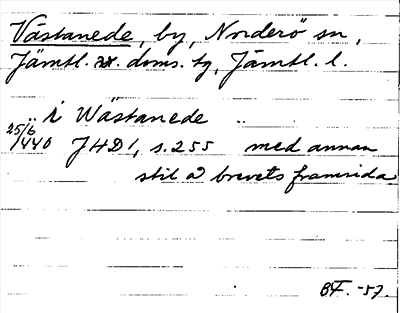 Västanede, by, Norderö sn,
Jämtl. doms. tg, Jämtl. l.
.. i Wästanede ..
25/6 1440 JHD 1, s. 255 med annan
stil å brevets framsida
BF. -57.